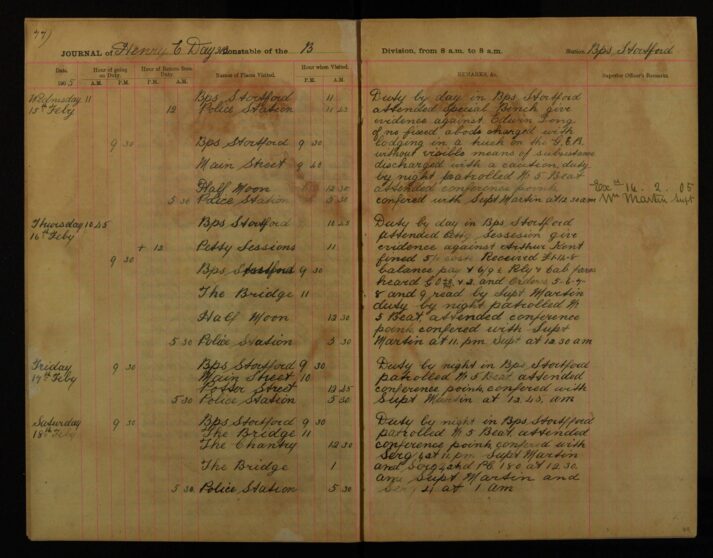 77)
JOURNAL of Henry E Day Constable of the B
Date. Hour of going on Duty. Hour of Return from Duty. Names of Places Visited. Hour when Visited.
1905 A.M. P.M. P.M. A.M. P.M. A.M.
Wednesday 11 Bps Stortford 11
15th Feby 12 Police Station 11 45
9 30 Bps Stortford 9 30
Main Street 9 40
Half Moon 12 30
5 30 Police Station 5 30
Thursday 10 45 Bps Stortford 10 45
16th Feby
+ 12 Petty Sessions 11
9 30
Bps Stortford 9 30
The Bridge 11
Half Moon 12 30
5 30 Police Station 5 30
Friday 9 30 Bps Stortford 9 30
17th Feby Main Street 10
Potter Street 12 45
5 30 Police Station 5 30
Saturday 9 30 Bps Stortford 9 30
18th Feby The Bridge 11
The Chantry 12 30
The Bridge 1
5 30 Police Station 5 30
Division, from 8 a.m. to 8 a.m. Station Bps Stortford
REMARKS, &c. Superior Officer's Remarks.
Duty by day in Bps Stortford
attended Special Bench give
evidence against Edwin Long
of no fixed abode charged with
lodging in a truck on the G.E.R.
without visible means of subsistance
discharged with a caution duty
by night patrolled No 5 Beat
attended conference point
confered with Supt Martin at 12.30 am
Ex 16. 2. 05
Wm Martin Supt
Duty by day in Bps Stortford
attended Petty Session give
evidence against Arthur Kent
fined 5/ costs Received
balance pay & 6/9 Rly & Cab fares
heard G O and Orders 5-6-7-
8 and 9 read by Supt Martin
duty by night patrolled No
5 Beat attended conference
point confered with Supt
Martin at 11. pm Supt at 12.30 am
Duty by night in Bps Stortford
patrolled No 5 Beat attended
conference point confered with
Supt Martin at 12.45. am
Duty by night in Bps Stortford
patrolled No 5 Beat attended
conference point confered with
Serg at 11 pm Supt Martin
and Serg and PC 180 at 12.30.
am Supt Martin and
Serg at 1 am